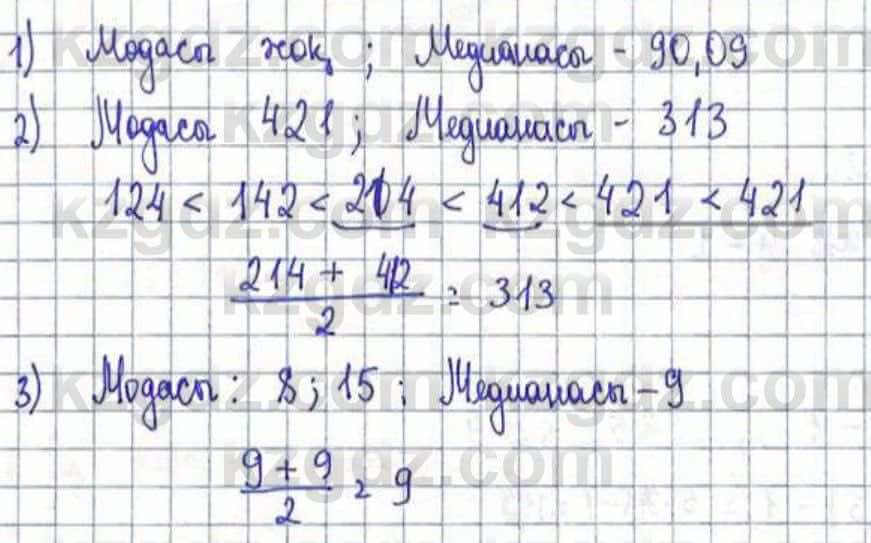 1) Модасы жоқ; Медианасы - 90,09
2) Модасы 421; Медианасы - 313
124 < 142 < 214 < 412 < 421 < 421
214 + 412 / 2 = 313
3) Модасы: 8; 15; Медианасы - 9
9 + 9 / 2 = 9
kzgdz.com